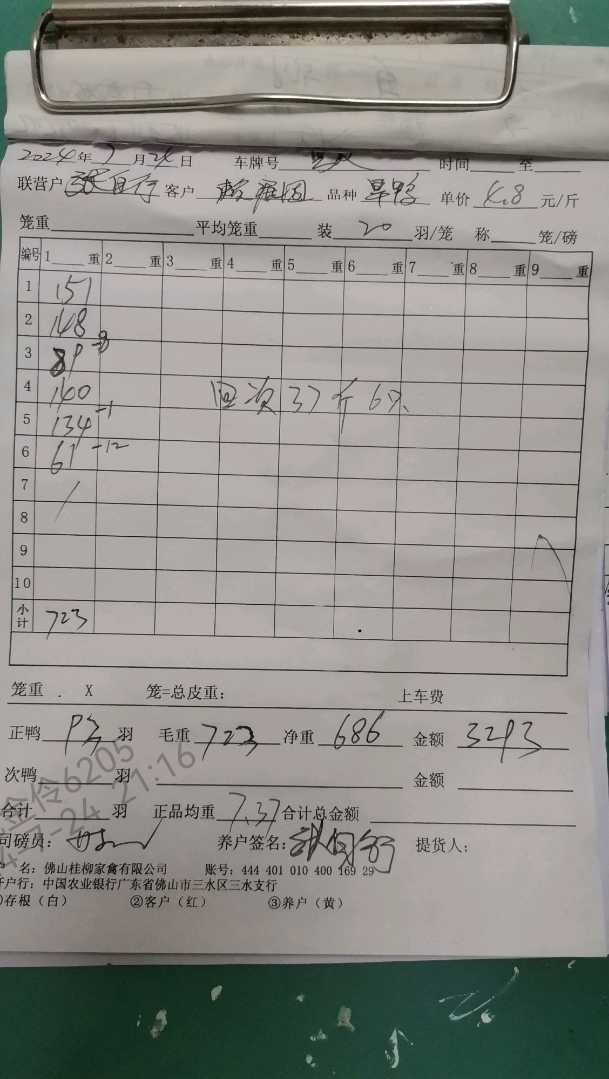 2024年7月24日 车牌号 时间 至
联营户 客户 品种 旱鸭 单价 4.8 元/斤
笼重 平均笼重 装 20 羽/笼 称 笼/磅
编号 1 重 2 重 3 重 4 重 5 重 6 重 7 重 8 重 9 重
1 151
2 148
3 89 -8
4 140
回次37斤6只
5 134 -1
6 61 -12
7
8
9
10
小计 723
笼重 . X 笼=总皮重: 上车费
正鸭 93 羽 毛重 723 净重 686 金额 3293
次鸭 羽 金额
合计 羽 正品均重 7.37 合计总金额
司磅员: 养户签名: 提货人:
名: 佛山桂柳家禽有限公司 账号: 444 401 010 400 169 29
户行: 中国农业银行广东省佛山市三水区三水支行
存根 (白) ②客户 (红) ③养户 (黄)
伶6205
-24 21:16